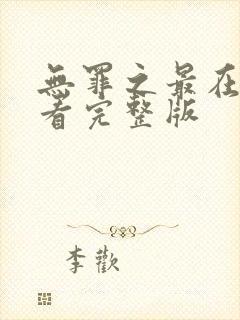 無罪之最在
看完整版
李歡